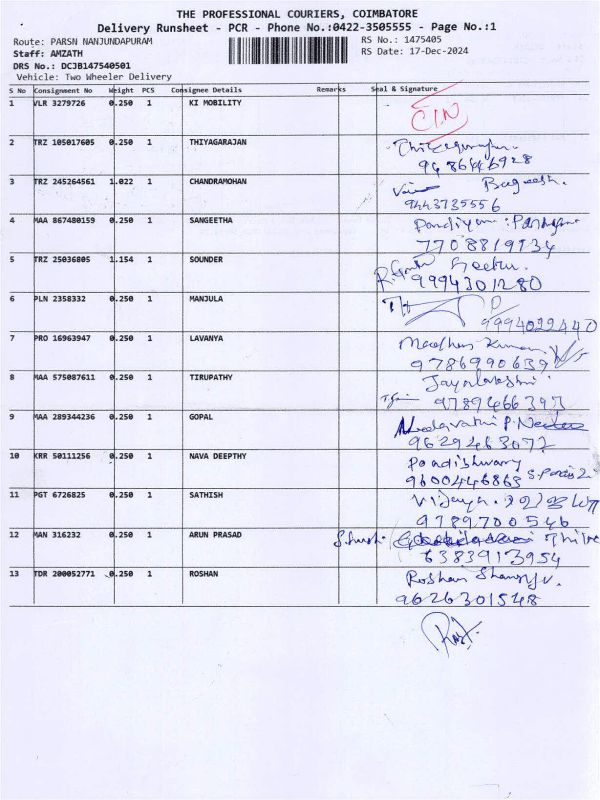 THE PROFESSIONAL COURIERS, COIMBATORE
Delivery Runsheet - PCR - Phone No.:0422-3505555 - Page No.:1
Route: PARSN NANJUNDAPURAM RS No.: 1475405
Staff: AMZATH RS Date: 17-Dec-2024
DRS No.: DCJB147540501
Vehicle: Two Wheeler Delivery
S No Consignment No Weight PCS Consignee Details Remarks Seal & Signature
1 VLR 3279726 0.250 1 KI MOBILITY
CIN
2 TRZ 105017605 0.250 1 THIYAGARAJAN
3 TRZ 245264561 1.022 1 CHANDRAMOHAN Bageesh.
9443735556
4 MAA 867480159 0.250 1 SANGEETHA Pandiyan :
7708819134
5 TRZ 25036805 1.154 1 SOUNDER Geethu.
9994301280
6 PLN 2358332 0.250 1 MANJULA
9994022440
7 PRO 16963947 0.250 1 LAVANYA Madhan Kumar
9786990639
8 MAA 575087611 0.250 1 TIRUPATHY Jayalakshmi
9789466393
9 MAA 289344236 0.250 1 GOPAL
9629463077
10 KRR 50111256 0.250 1 NAVA DEEPTHY Pandishwary
9600446863
11 PGT 6726825 0.250 1 SATHISH Vijaya.
9789700546
12 MAN 316232 0.250 1 ARUN PRASAD
6383913954
13 TDR 200052771 0.250 1 ROSHAN Roshan
9626301548